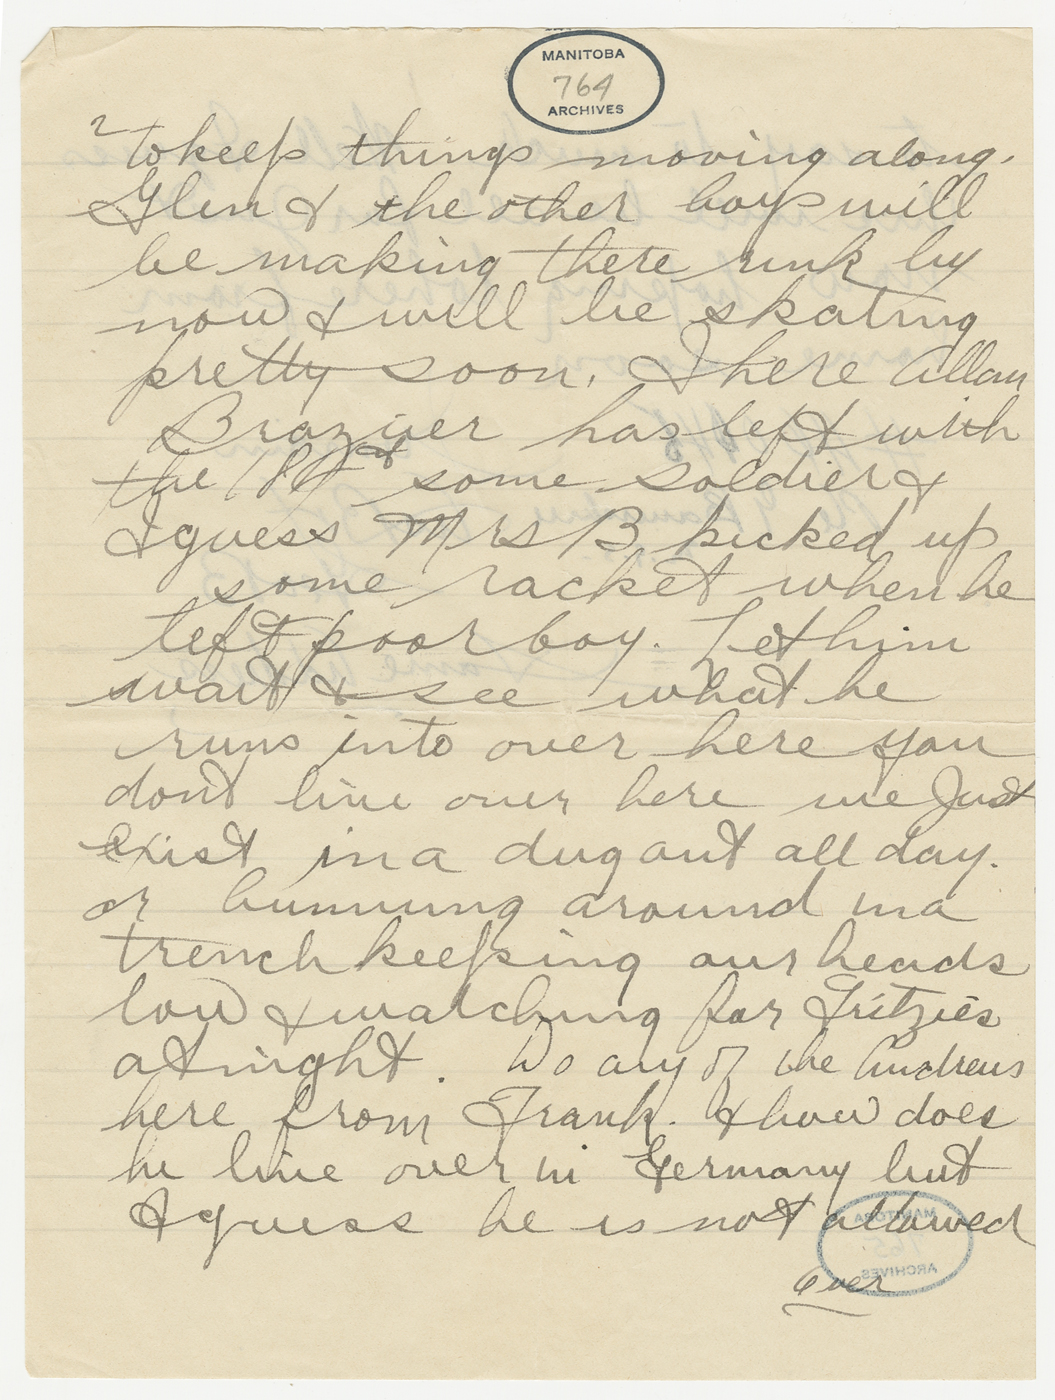 MANITOBA
764
ARCHIVES
2
to keep things moving along.
Glen & the other boys will
be making there rink by
now & will be skating
pretty soon. I here Allan
Brazier has left with
the 181st some soldier &
I guess Mrs B kicked up
some racket when he
left poor boy. Let him
wait & see what he
runs into over here you
don't live over here we Just
exist in a dug out all day.
or bumming around in a
trench keeping our heads
low & watching for Fritzies
at night. Do any of the Andrews
here from Frank. & how does
he live over in Germany but
I guess he is not allowed
over